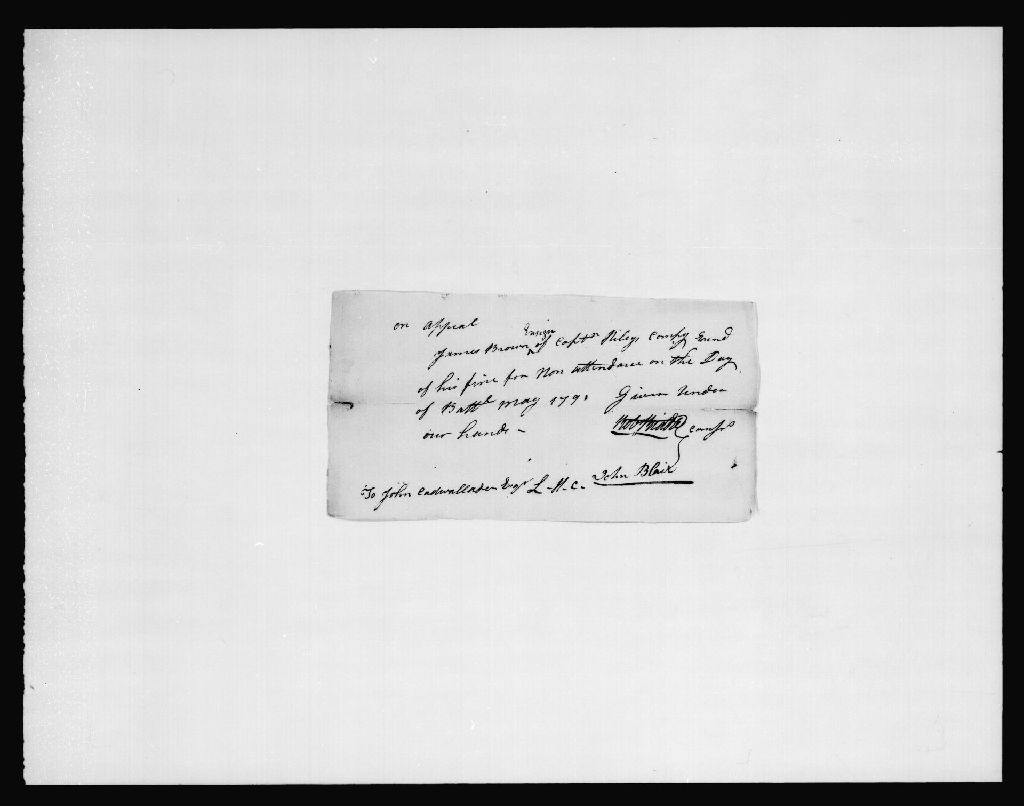 on Appeal
Ensign
James Brown ^ of Captn Rileys Compy
of his fine for Non attendance on the Day
of Battl May 1791 Given under
our hands -
Comsrs
John Blair
To John Cadwallader Esqr L-H-C-